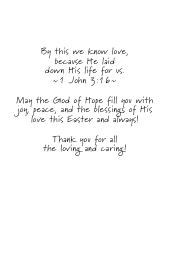 By this we know love,
because He laid
down His life for us.
~1 John 3:16~
May the God of Hope fill you with
joy, peace, and the blessings of His
love this Easter and always!
Thank you for all
the loving and caring!